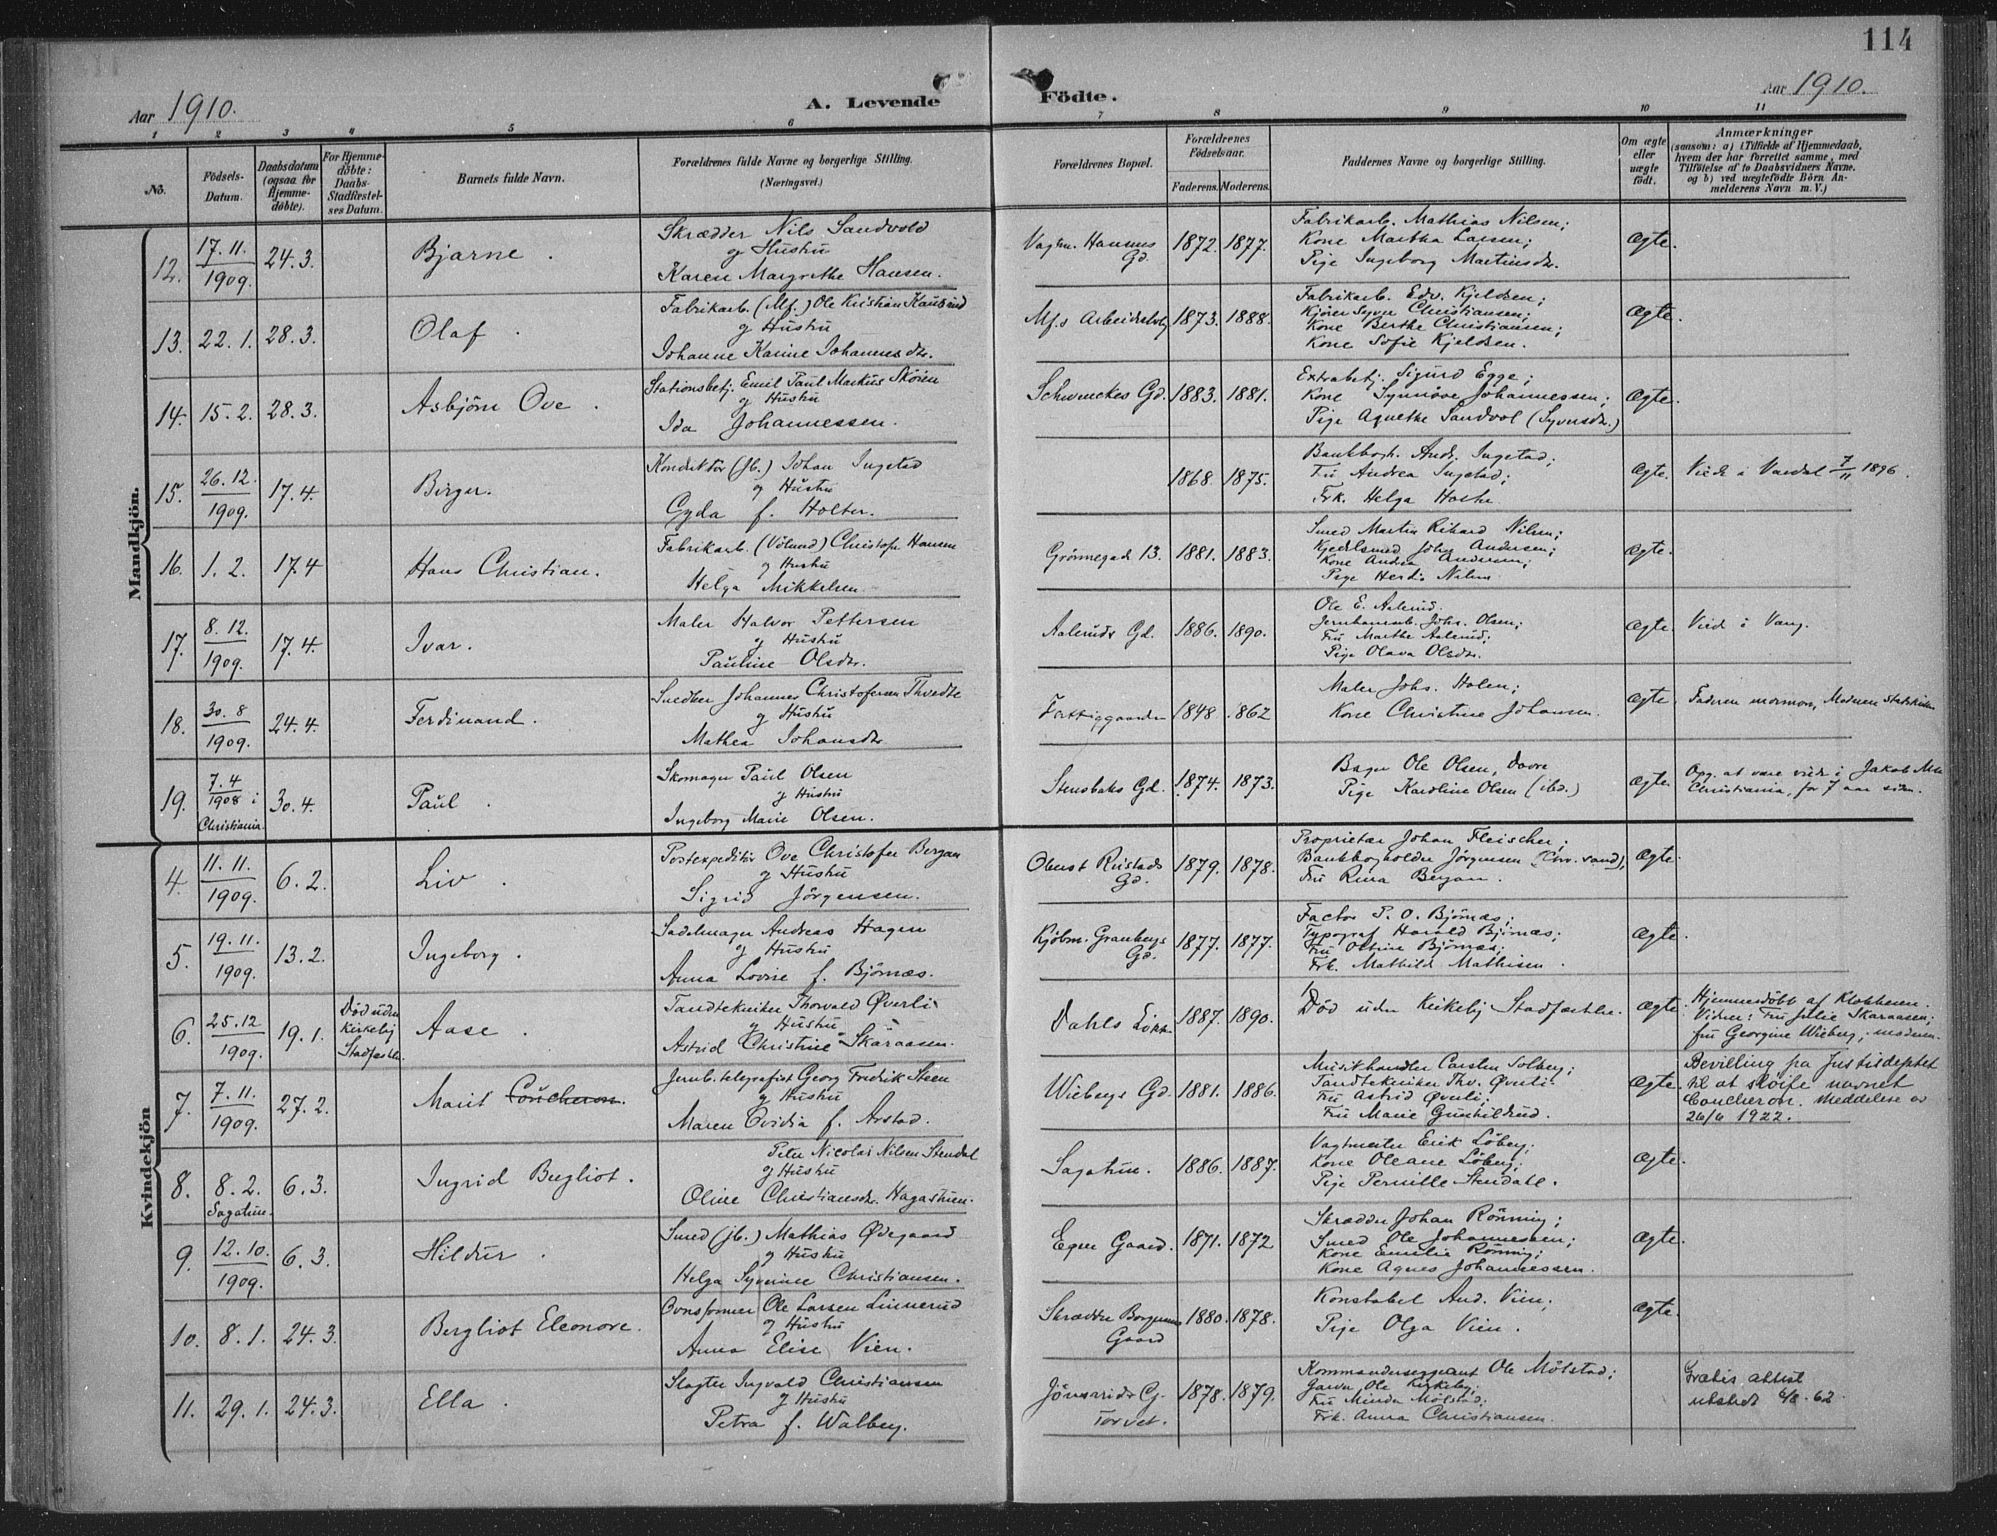 114
Aar 1910.
A. Levende Födte.
Aar 1910.
1 2 3 4 5 6 7 8 9 10 11
No.
Födsels-Datum.
Daabsdatum (ogsaa for Hjemme-döbte).
For Hjemme-döbte: Daabs-Stadfæstel-ses Datum.
Barnets fulde Navn.
Forældrenes fulde Navne og borgerlige Stilling.
(Næringsvei.)
Forældrenes Bopæl.
Forældrenes Födselsaar.
Faderens. Moderens.
Faddernes Navne og borgerlige Stilling.
Om ægte eller uægte födt.
Anmærkninger
(saasom: a) i Tilfælde af Hjemmedaab,
hvem der har forrettet samme, med
Tilföielse af to Daabsvidners Navne.
og b) ved uægtefödte Börn An-
melderens Navn m. V.)
Mandkjön.
12. 17.11. 1909. 24.3. Bjarne.
Skrædder Nils Sandvold
og Hustru
Karen Margrethe Hansen.
Vagtm. Hansens Gd. 1872. 1877.
Fabrikarb. Mathias Nilsen;
Kone Martha Larsen;
Pige Ingeborg Martinsdr.
ægte.
13. 22.1. 28.3. Olaf.
Fabrikarb. (Mf.) Ole Kristian Kausrud
og Hustru
Johanne Karine Johannesdr.
Mf.s Arbeiderbolig 1873. 1888.
Fabrikarb. Edv. Kjeldsen;
Kjörer Syver Christiansen;
Kone Berthe Christiansen;
Kone Sofie Kjeldsen.
ægte.
14. 15.2. 28.3. Asbjörn Ove.
Stationsbetj. Emil Paul Markus Skoien
og Hustru
Ida Johannessen.
Schwenckes Gd. 1883. 1881.
Extrabetj. Sigurd Egge;
Kone Synnöve Johannessen;
Pige Agnethe Sandvol (Syversdr.)
ægte.
15. 26.12. 1909. 17.4. Birger.
Konduktör (Jb.) Johan Ingstad
og Hustru
Gyda f. Holter.
1868. 1875.
Bankbogh. Andr. Ingstad;
Fru Andrea Ingstad;
Frk. Helga Holte.
ægte. Viede i Vardal 7/11 1896.
16. 1.2. 17.4 Hans Christian.
Fabrikarb. (Völund) Christofr Hansen
og Hustru
Helga Mikkelsen
Grönnegade 13. 1881. 1883.
Smed Martin Rikard Nilsen;
Kjedelsmed John Andersen;
Kone Andrea Andersen;
Pige Herdis Nilsen
ægte.
17. 8.12. 1909. 17.4. Ivar.
Maler Halvor Pettersen
og Hustru
Pauline Olsdr.
Aalerüds Gd. 1886. 1890.
Ole E. Aalerud.
Jernbanearb. Johs. Olsen;
Fru Marthe Aalerud;
Pige Olava Olsdr.
ægte. Viede i Vang.
18. 30.8 1909. 24.4. Ferdinand.
Snedker Johannes Christofersen Thvedte
og Hustru
Mathea Johansdr
Fattiggaarden 1848. 862
Maler Johs. Holen;
Kone Christine Johansen.
ægte. Faderen mormon, Moderen Statskirken
19. 7.4 1908 i Christiania. 30.4. Paul.
Skomager Paul Olsen
og Hustru
Ingeborg Marie Olsen.
Stensbaks Gd. 1874. 1873.
Bager Ole Olsen, Dovre
Pige Karoline Olsen (ibd.)
ægte. Opg. at være viede i Jakob
Christiania, for 7 aar siden.
Kvindekjön
4. 11.11. 1909. 6.2. Liv.
Postexpeditör Ove Christofer Bergan
og Hustru
Sigrid Jörgensen.
Oberst Rustads Gd. 1879. 1878.
Proprietær Johan Fleischer;
Bankbogholder Jörgensen (Chr. sand);
Fru Rina Bergan.
ægte.
5. 19.11. 1909. 13.2. Ingeborg.
Sadelmager Andreas Hagen
og Hustru
Anna Lovise f. Björnæs.
Kjöbm. Granbergs Gd. 1877. 1877.
Factor P. O. Björnæs;
Typograf Harald Björnæs;
Fru Björnæs;
Frk. Mathilde Mathisen.
ægte.
6. 25.12 1909. 19.1. Död uden kirkelig Stadfæstelse. Aase.
Tandtekniker Thorvald Øverli
og Hustru
Astrid Christine Skaraasen.
Dahls Lökke 1887. 1890.
Död uden Kirkelig Stadfæstelse.
ægte. Hjemmedöbt af Klokkeren.
Vidner: Fru Julie Skaraasen;
fru Georgine Wieberg, moderen.
7. 7.11. 1909. 27.2. Marit Coucheron.
Jernb. telegrafist Georg Fredrik Steen
og Hustru
Maren Ovidia f. Arstad.
Wiebergs Gd. 1881. 1886.
Musikhandler Carsten Solberg;
Tandtekniker Thv. Øverli
Fru Astrid Øverli;
Fru Marie Gunhildrud.
ægte. Bevilling fra Justisdeptet
til at sløife navnet
Coucheron. Meddelelse av
26/6 1922.
8. 8.2. Sagatun. 6.3. Ingrid Bergliot.
Peter Nicolai Nilsen Stendal
og Hustru
Oline Christiansdr. Hagastuen.
Sagatun. 1886. 1887.
Vagtmester Erik Löberg;
Kone Oleane Löberg;
Pige Pernille Stendahl.
ægte.
9. 12.10. 1909. 6.3. Hildur.
Smed (jb.) Mathias Ødegaard
og Hustru
Helga Syverine Christiansen.
Egner Gaard. 1871. 1872
Skrædder Johan Rönning;
Smed Ole Johannessen;
Kone Emilie Rönning;
Kone Agnes Johannessen.
ægte.
10. 8.1. 24.3. Bergliot Eleonore.
Ovnsformer Ole Larsen Linnerud
og Hustru
Anna Elise Vien.
Skrædder Borgersens Gaard 1880. 1878.
Konstabel And. Vien;
Pige Olga Vien.
ægte.
11. 29.1. 24.3. Ella.
Slagter Ingvald Christiansen
og Hustru
Petra f. Walberg.
Jönsruds G. Torvet. 1878. 1879.
Kommandersergeant Ole Mölstad;
Garver Ole Kirkeby;
Fru Minda Mölstad;
Frk. Anna Christiansen.
ægte. Gratis attest
utstedt 6/8-62